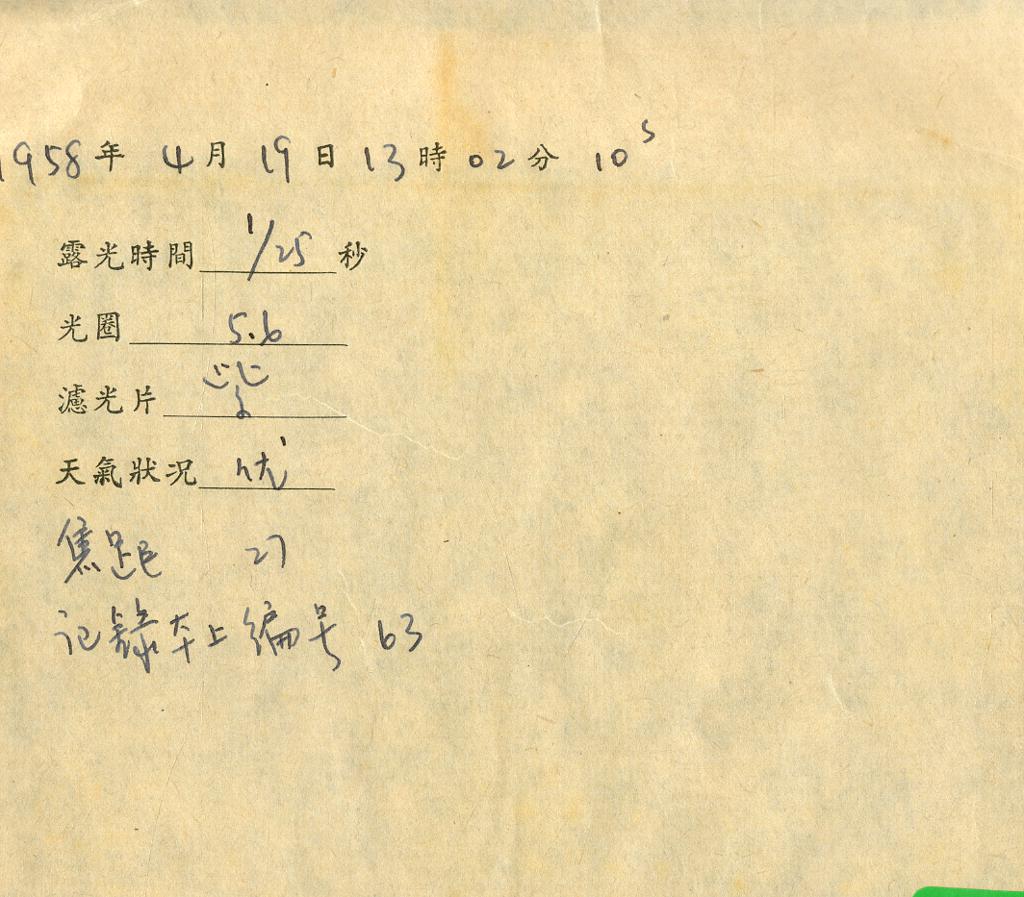 1958年 4月 19日 13時 02分 10s
露光時間 1/25 秒
光圈 5.6
濾光片
天氣狀况 优
焦距 27
记録本上编号 63